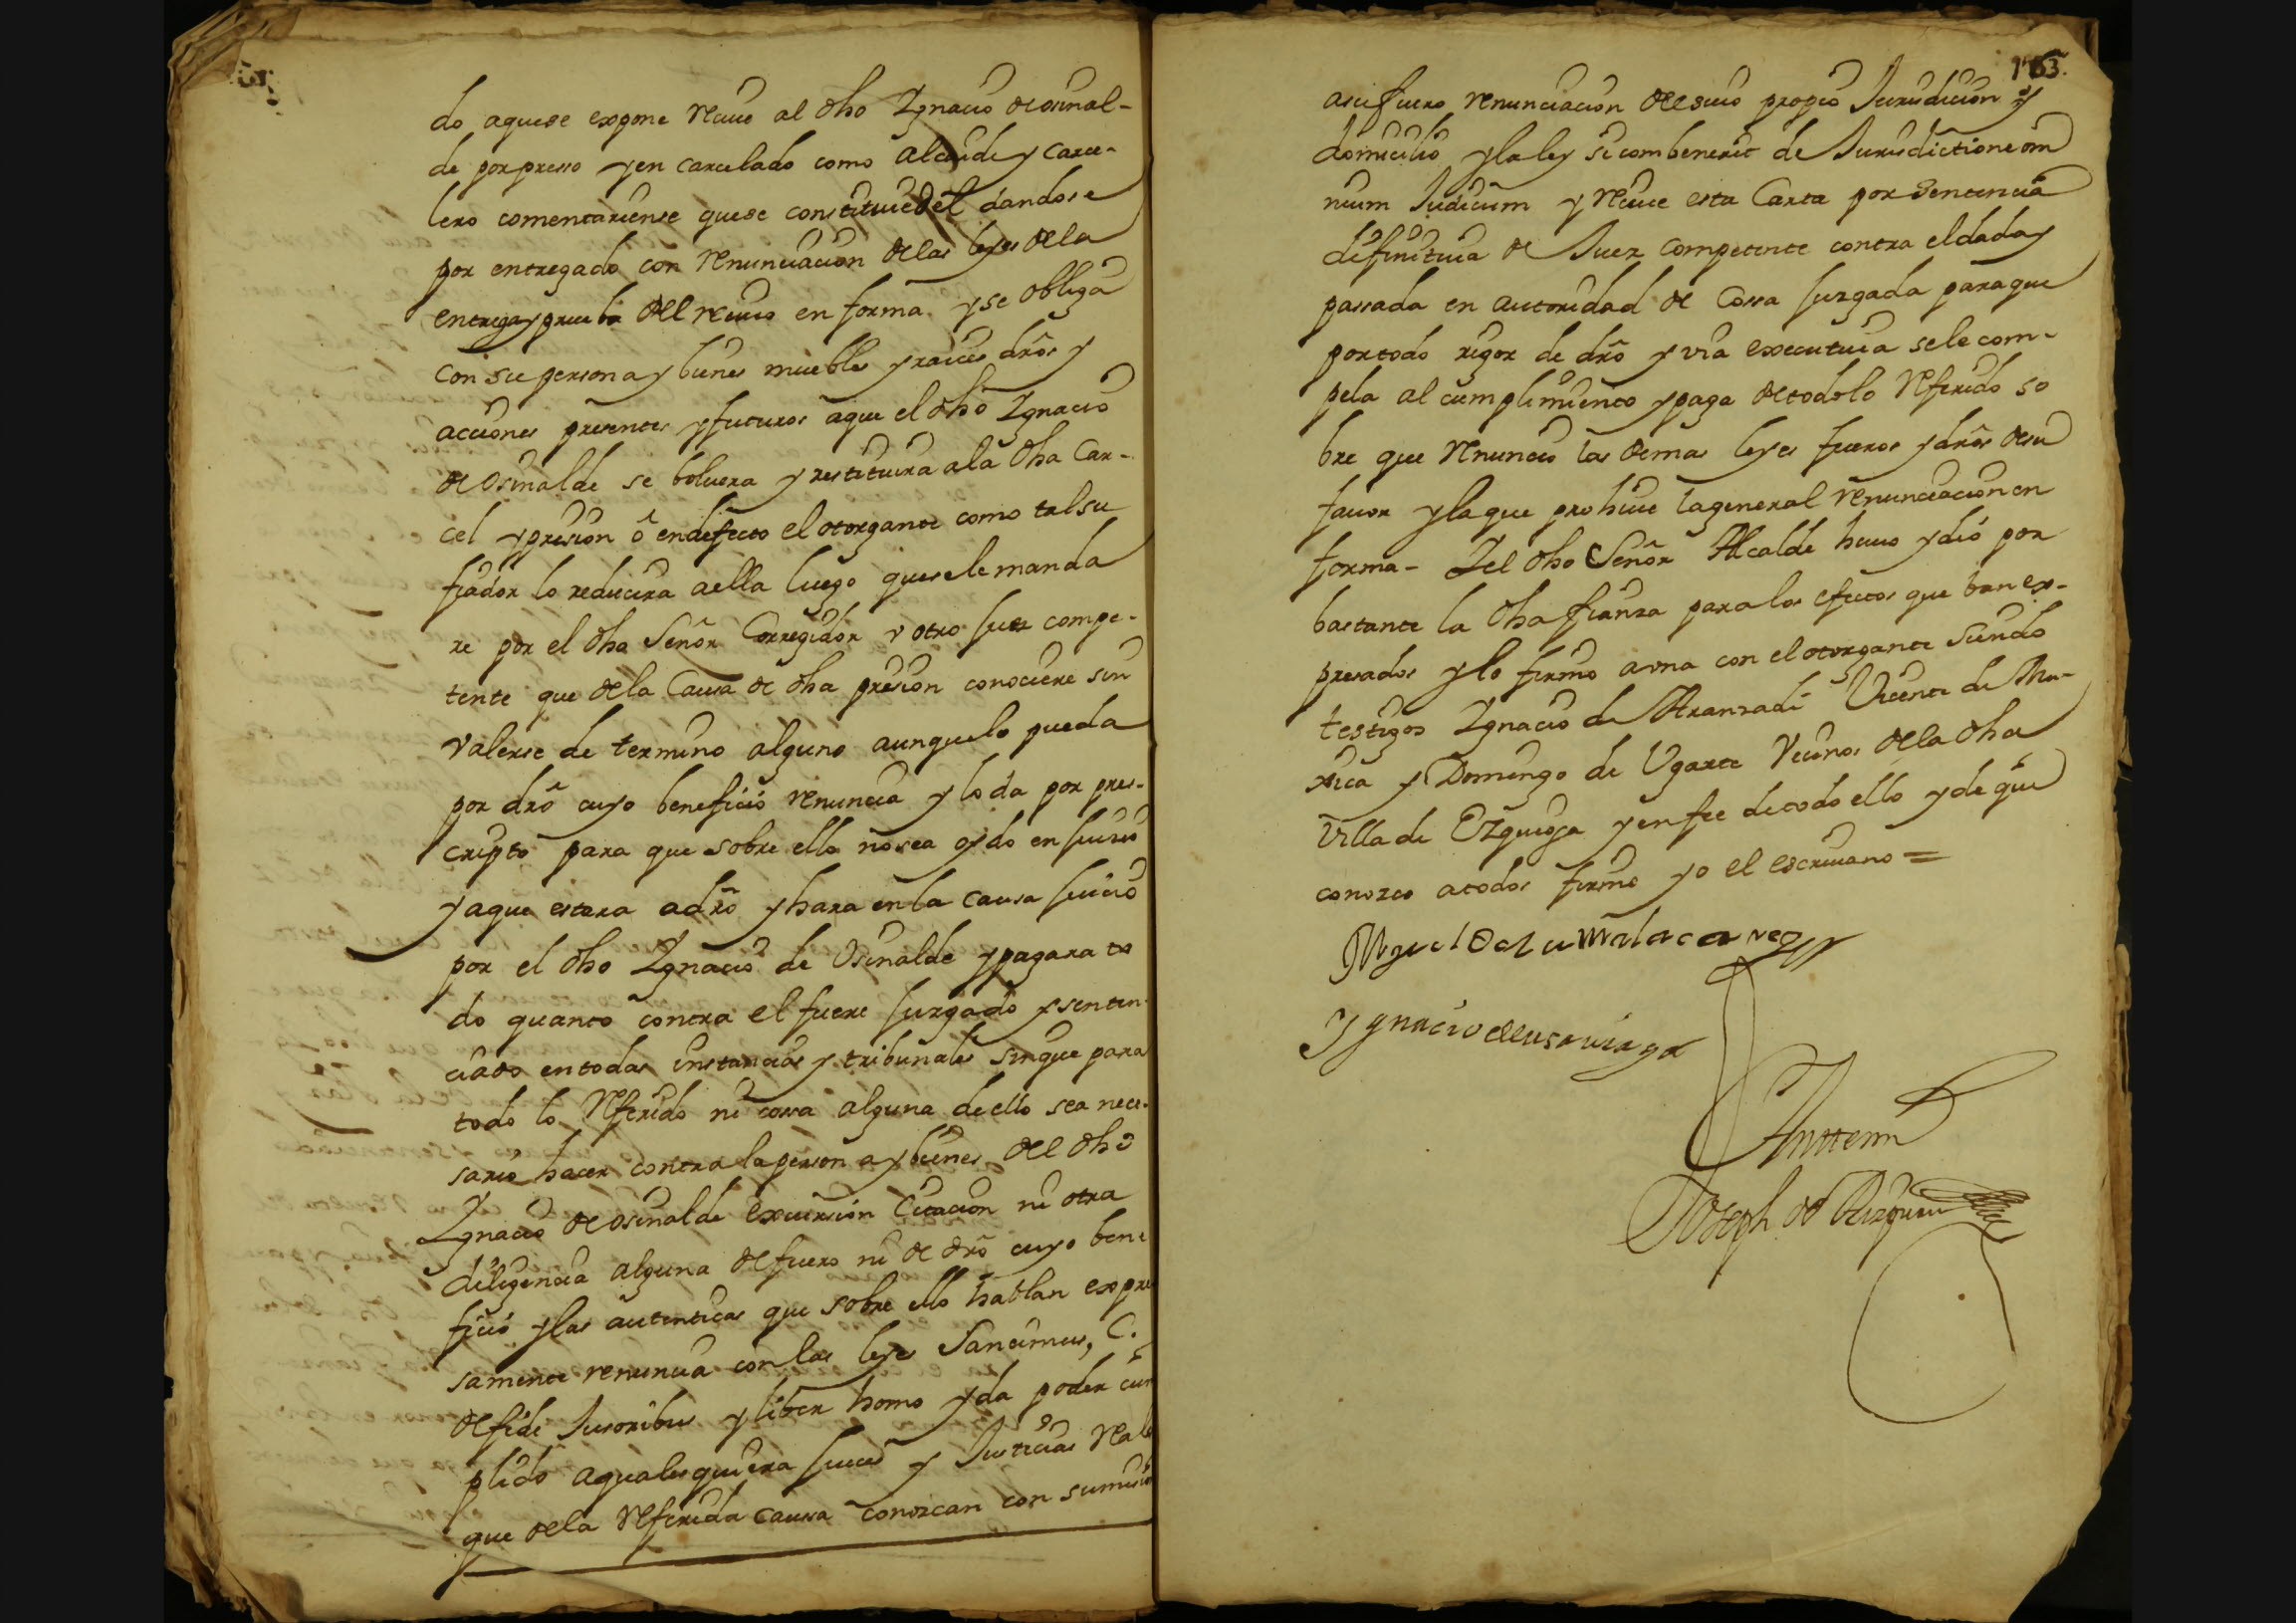 do aquese expone reciue al dho Ygnacio de osinal-
de por presso y en carcelado como alcaide y Carce-
lero comentariense quese constituie del dandose
por entregado con renunciacion de las leyes de la
entrega y prueba del reciuo en forma y se obliga
con su persona y bienes muebles y raices dr̃os y
acciones presentes y futuros aque el dho Ygnacio
de Osinalde se boluera y restituira ala dha Car-
cel y presion ô en defecto el otorgante como tal su
fiador lo reducira aella luego quesele manda
re por el dho Señor Corregidor v otro Juez compe-
tente que dela Causa de dha presion conociere sin
valerse de termino alguno aunquelo pueda
por dr̃o cuyo beneficio renuncia y lo da por pres-
cripto para que sobre ello no sea oydo en Juicio
y aque estara adr̃o y hara en la causa Juicio
por el dho Ygnacio de Osinalde y pagara to
do quanto contra el fuere Juzgado y senten-
ciado entodas instancias y tribunales sin que para
todo lo Referido ni cossa alguna de ello sea nece-
sario hacer contra la persona y bienes del dho
Ygnacio de osinalde excursion Citacion ni otra
diligencia alguna de fuero ni de dr̃o cuyo bene
ficio y las autenticas que sobre ello hablan expre
samente renuncia con las leyes Sancimus, C.
de fide Jusoribus y liber homo y da poder cum
plido aqualesquiera Jueces y Justicias Reales
que dela Referida causa conozcan con sumision
163.
asu fuero renunciacion del suio propio Jurisdicion y
domicilio y la ley si combenerit de Jurisdictione om
nium Judicum y Reciue esta Carta por Sentencia
difinitiua de Juez competente contra el dada y
passada en autoridad de Cossa Juzgada paraque
portodo rigor de dr̃o y via executiua sele com-
pela al cumplimiento y paga detodolo Referido so
bre que Renuncio las demas leyes fueros y dr̃os desu
fauor y la que prohiue la general renunciacion en
forma- Y el dho Señor Alcalde huuo y dió por
bastante la dha fianza para los efectos que ban ex-
presados y lo firmo auna con el otorgante siendo
testigos Ygnacio de Aranzadi Vicente de Mu-
xica y Domingo de Ugarte Vecinos dela dha
Villa de Ezquioga y en fee detodo ello y de que
conozco atodos firmo yo el escriuano =
Miguel de Zumalacarregui
Ygnacio de
Anttemi
Joseph de